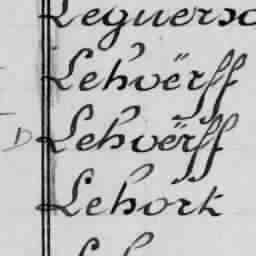 Leguersc
Lehvërff
D Lehvërff
Lehörk